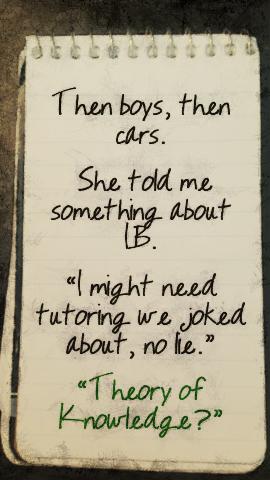 Then boys, then
cars.
She told me
something about
LB.
“I might need
tutoring we joked
about, no lie.”
“Theory of
Knowledge?”